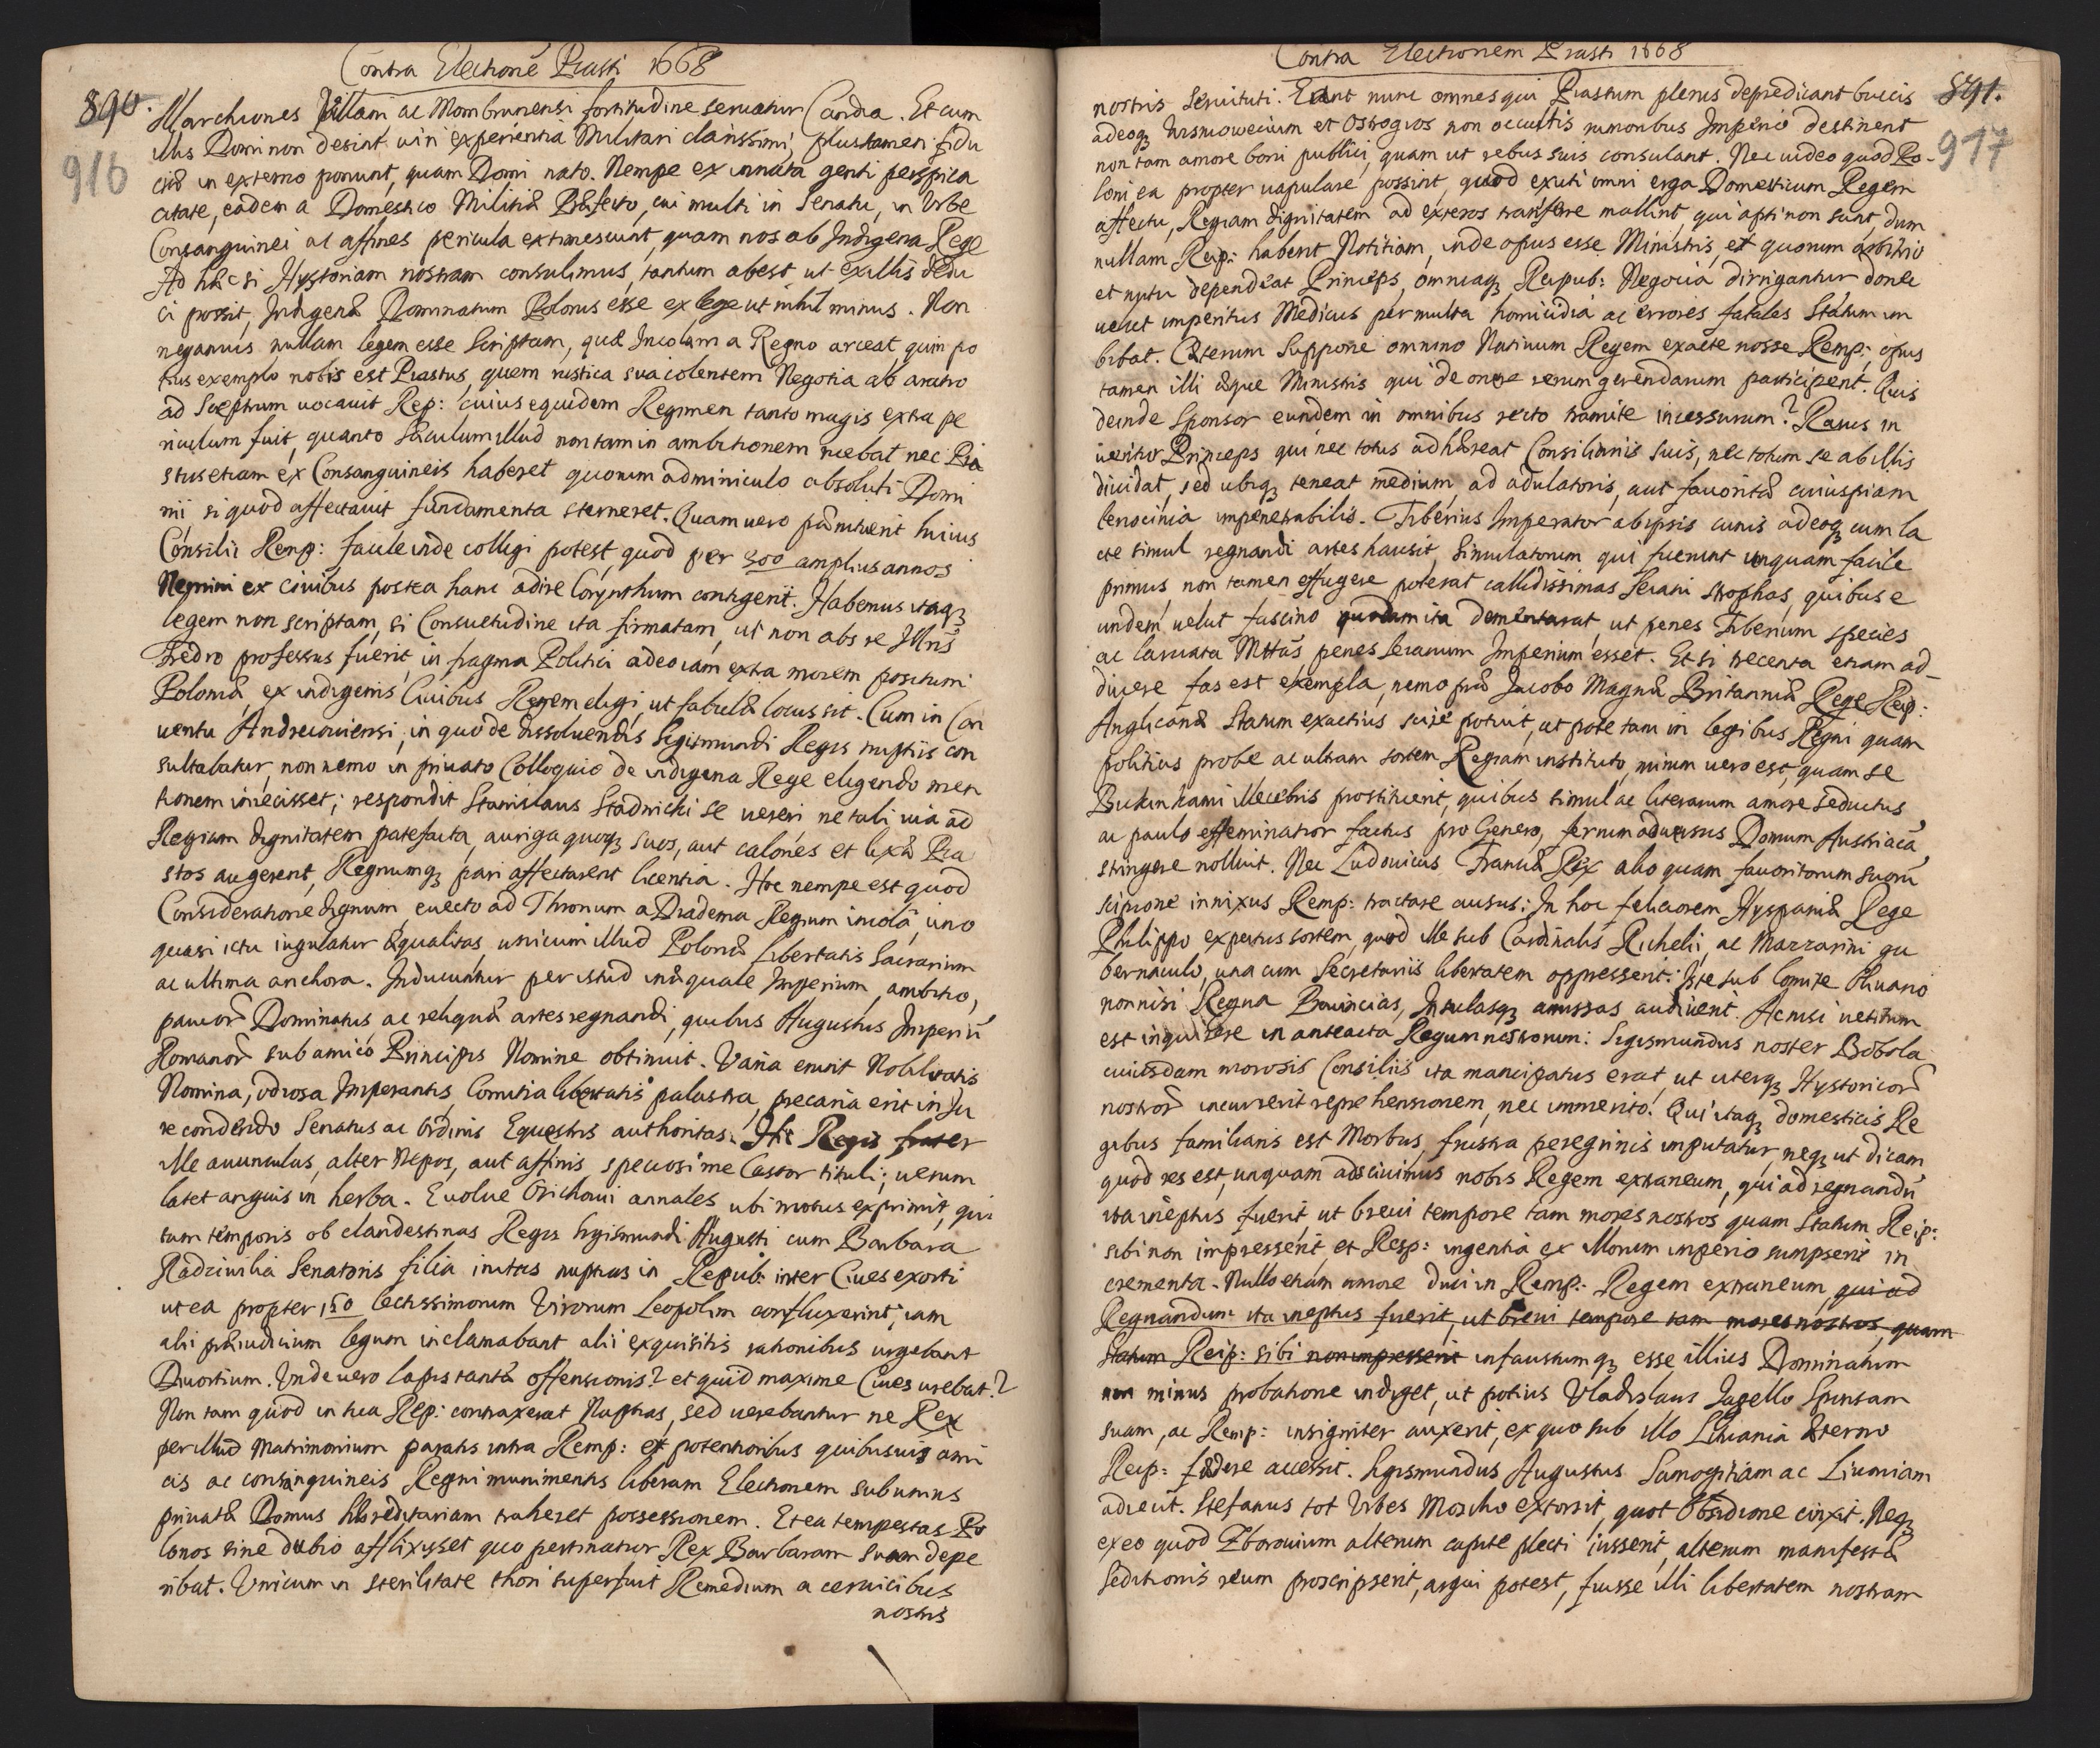 Contra Electionē Piasti 1668
890.
916
Marchiones Villam ac Mombrunensi fortitudine seruatur Candia. Et cum
illis Domi non desint uiri experientia Militari clarissimi, plus tamen fidu
ciæ in externo ponunt, quam Domi nato. Nempe ex innata genti perspica
citate, eadem a Domestico Militiæ Præfecto, cui multi in Senatu, in Vrbe
Consanguinei ac affines pericula extimescunt, quam nos ab Indigena Rege
Ad hæc si Hystoriam nostram consulimus, tantum abest ut ex illis dedu
ci possit, Indigenæ Dominatum Polonis esse ex lege ut nihil minus. Non
negamus nullam legem esse Scriptam, quæ Incolam a Regno arceat, quin po
tius exemplo nobis est Piastus, quem rustica sua colentem Negotia ab aratro
ad Sceptrum uocauit Rep: cuius equidem Regimen tanto magis extra pe
riculum fuit, quanto Sæculum illud non tam in ambitionem ruebat nec Pia
stus etiam ex Consanguineis haberet quorum adminiculo absoluti Domi
nii, si quod affectauit fundamenta sterneret. Quam uero pænituerit huius
Consilii Remp: facile inde colligi potest, quod per 300 amplius annos
Nemini ex ciuibus postea hanc adire Corynthum contigerit. Habemus itaqꝫ
legem non scriptam, si Consuetudine ita firmatam, ut non abs re Illris
Fredro professus fuerit, in fragma Politici adeo iam extra morem positum
Poloniæ, ex indigenis Ciuibus Regem eligi, ut fabulæ locus sit. Cum in Con
uentu Andreiouiensi, in quo de dissoluendis Sigismundi Regis nuptiis con
sultabatur, non nemo in priuato Colloquio de indigena Rege eligendo men
tionem iniecisset; respondit Stanislaus Stadnicki se uereri ne tali uia ad
Regiam dignitatem patefacta, auriga quoqꝫ suos, aut calones et lixæ Pia
stos augerent, Regnumqꝫ pari affectarent licentia. Hoc nempe est quod
Consideratione dignum, euecto ad Thronum a Diadema Regium incola, uno
quasi ictu iugulatur æqualitas, unicum illud Polonæ libertatis Sacrarium
ac ultima anchora. Inducuntur per istud inæquale Imperium, ambitio,
paucor̃ Dominatus ac reliquæ artes regnandi, quibus Augustus Imperiũ
Romanor̃ sub amico Principis Nomine obtinuit. Vana erunt Nobilitatis
Nomina, odiosa Imperantis, Comitia libertatis palæstra, precaria erit in Iu
re condendo Senatus ac Ordinis Equestris authoritas. Hic Regis frater
Ille auunculus, alter Nepos, aut affinis, speciosi me Castor tituli; uerum
latet anguis in herba. Euolue Orichoui annales ubi motus exprimit, qui
tum temporis ob clandestinas Regis Sigismundi Augusti cum Barbara
Radziwilia Senatoris filia initas nuptias in Repub: inter Ciues exorti
ut ea propter 150 lectissimorum Virorum Leopolim confluxerint, iam
alii præiudicium legum inclamabant alii exquisitis rationibus urgebant
Diuortium. Vnde uero lapis tantæ offensionis? et quid maxime Ciues urebat?
Non tam quod in tua Rep: contraxerat Nuptias, sed uerebantur ne Rex
per illud Matrimonium paratis intra Remp: et potentioribus quibusuis ami
cis ac consanguineis Regni munimentis liberam Electionem sub unius
priuatæ Domus hæreditariam traheret possessionem. Et ea tempestas Po
lonos sine dubio afflixisset quo pertinatior Rex Barbaram suam depe
ribat. Vnicum in sterilitate thori superfuit Remedium a ceruicibus
nostris
Contra Electionem Piasti 1668
891.
917
nostris Seruituti. Eant nunc omnes qui Piastum plenis depredicant buccis
adeoqꝫ Wisniowecium et Ostrogios non occultis rumoribus Imperio destinent
non tam amore boni publici, quam ut rebus suis consulant. Nec uideo quod Po-
loni ea propter uapulare possint, quod exuti omni erga Domesticum Regem
affectu, Regiam dignitatem ad exteros transferre mallint, qui apti non sunt, dum
nullam Reip: habent Notitiam, inde opus esse Ministris, et quorum arbitrio
et nutu dependeat Princeps, omniaqꝫ Reipub: Negotia dirrigantur donec
uelut imperitus Medicus per multa homicidia ac errores fatales Statum im
bibat. Cæterum Suppone omnino Natiuum Regem exacte nosse Remp; opus
tamen illi æque Ministris qui de onere rerum gerendarum participent. Quis
deinde Sponsor eundem in omnibus recto tramite incessurum? Rarus in
uenitur Princeps qui nec totus adhæreat Consiliariis suis, nec totum se ab illis
diuidat, sed ubiqꝫ teneat medium, ad adulatoris, aut fauoritæ cuiuspiam
lenocinia impenetrabilis. Tiberius Imperator ab ipsis cunis adeoqꝫ cum la
cte simul regnandi artes hausit, Simulatorum qui fuerunt unquam facile
primus non tamen effugere poterat callidissimas Seiani strophas, quibus e
undem uelut fascino quodam ita dementarat, ut penes Tiberium species
ac laruata Mttas penes Seianum Imperium esset. Et si recentia etiam ad-
ducere fas est exempla, nemo præ Jacobo Magnæ Britanniæ Rege Reip:
Anglicanæ Statum exactius scire potuit, ut pote tam in legibus Regni quam
politius probe ac ultram sortem Regiam instituto, mirum uero est, quam se
Bukinhami illecebris prostituerit, quibus simul ac literarum amore seductus
ac paulo effeminatior factus pro Genero, ferrum aduersus Domum Austriacã
stringere nolluit. Nec Ludouicus Franciæ Rex alio quam fauoritorum suorũ
scipione innixus Remp: tractare ausus: In hoc feliciorem Hyspaniæ Rege
Philippo expertus sortem, quod ille sub Cardinalis Richelii, ac Mazzarini gu
bernaculo, una cum Secretariis libertatem oppresserit: Iste sub Comite Oliuario
non nisi Regna Prouincias, Insulasqꝫ amissas audiuerit. Ac nisi uetitum
est inquirere in anteacta Regum nostrorum: Sigismundus noster Bobola
cuiusdam morosis Consiliis ita mancipatus erat ut uterqꝫ Hystoricor̃
nostror̃ incurrerit reprehensionem, nec immerito. Qui itaqꝫ domesticis Re
gibus familiaris est Morbus, frustra peregrinis imputatur, neqꝫ ut dicam
quod res est, unquam adsciuimus nobis Regem extraneum, qui ad regnandũ
ita ineptus fuerit, ut breui tempore tam mores nostros quam Statum Reip:
sibi non impresserit, et Resp: ingentia ex illorum imperio sumpserit in
crementa. Nullo etiam amore duci in Remp: Regem extraneum, qui ad
Regnandum ita ineptus fuerit, ut breui tempore tam mores nostros, quam
statum Reip: sibi non impresserit infaustumqꝫ esse illius Dominatum
non minus probatione indiget, ut potius Vladislaus Jagello Spontam
suam, ac Remp: insigniter auxerit, ex quo sub illo Lituania æterno
Reip: fædere accessit. Sigismundus Augustus Samogitiam ac Liuoniam
adiecit. Stefanus tot Vrbes Moscho extorsit, quot Obsidione cinxit. Neqꝫ
ex eo quod Zborouium alterum capite plecti iusserit, alterum manifestæ
Seditionis reum proscripserit, argui potest, fuisse illi libertatem nostram